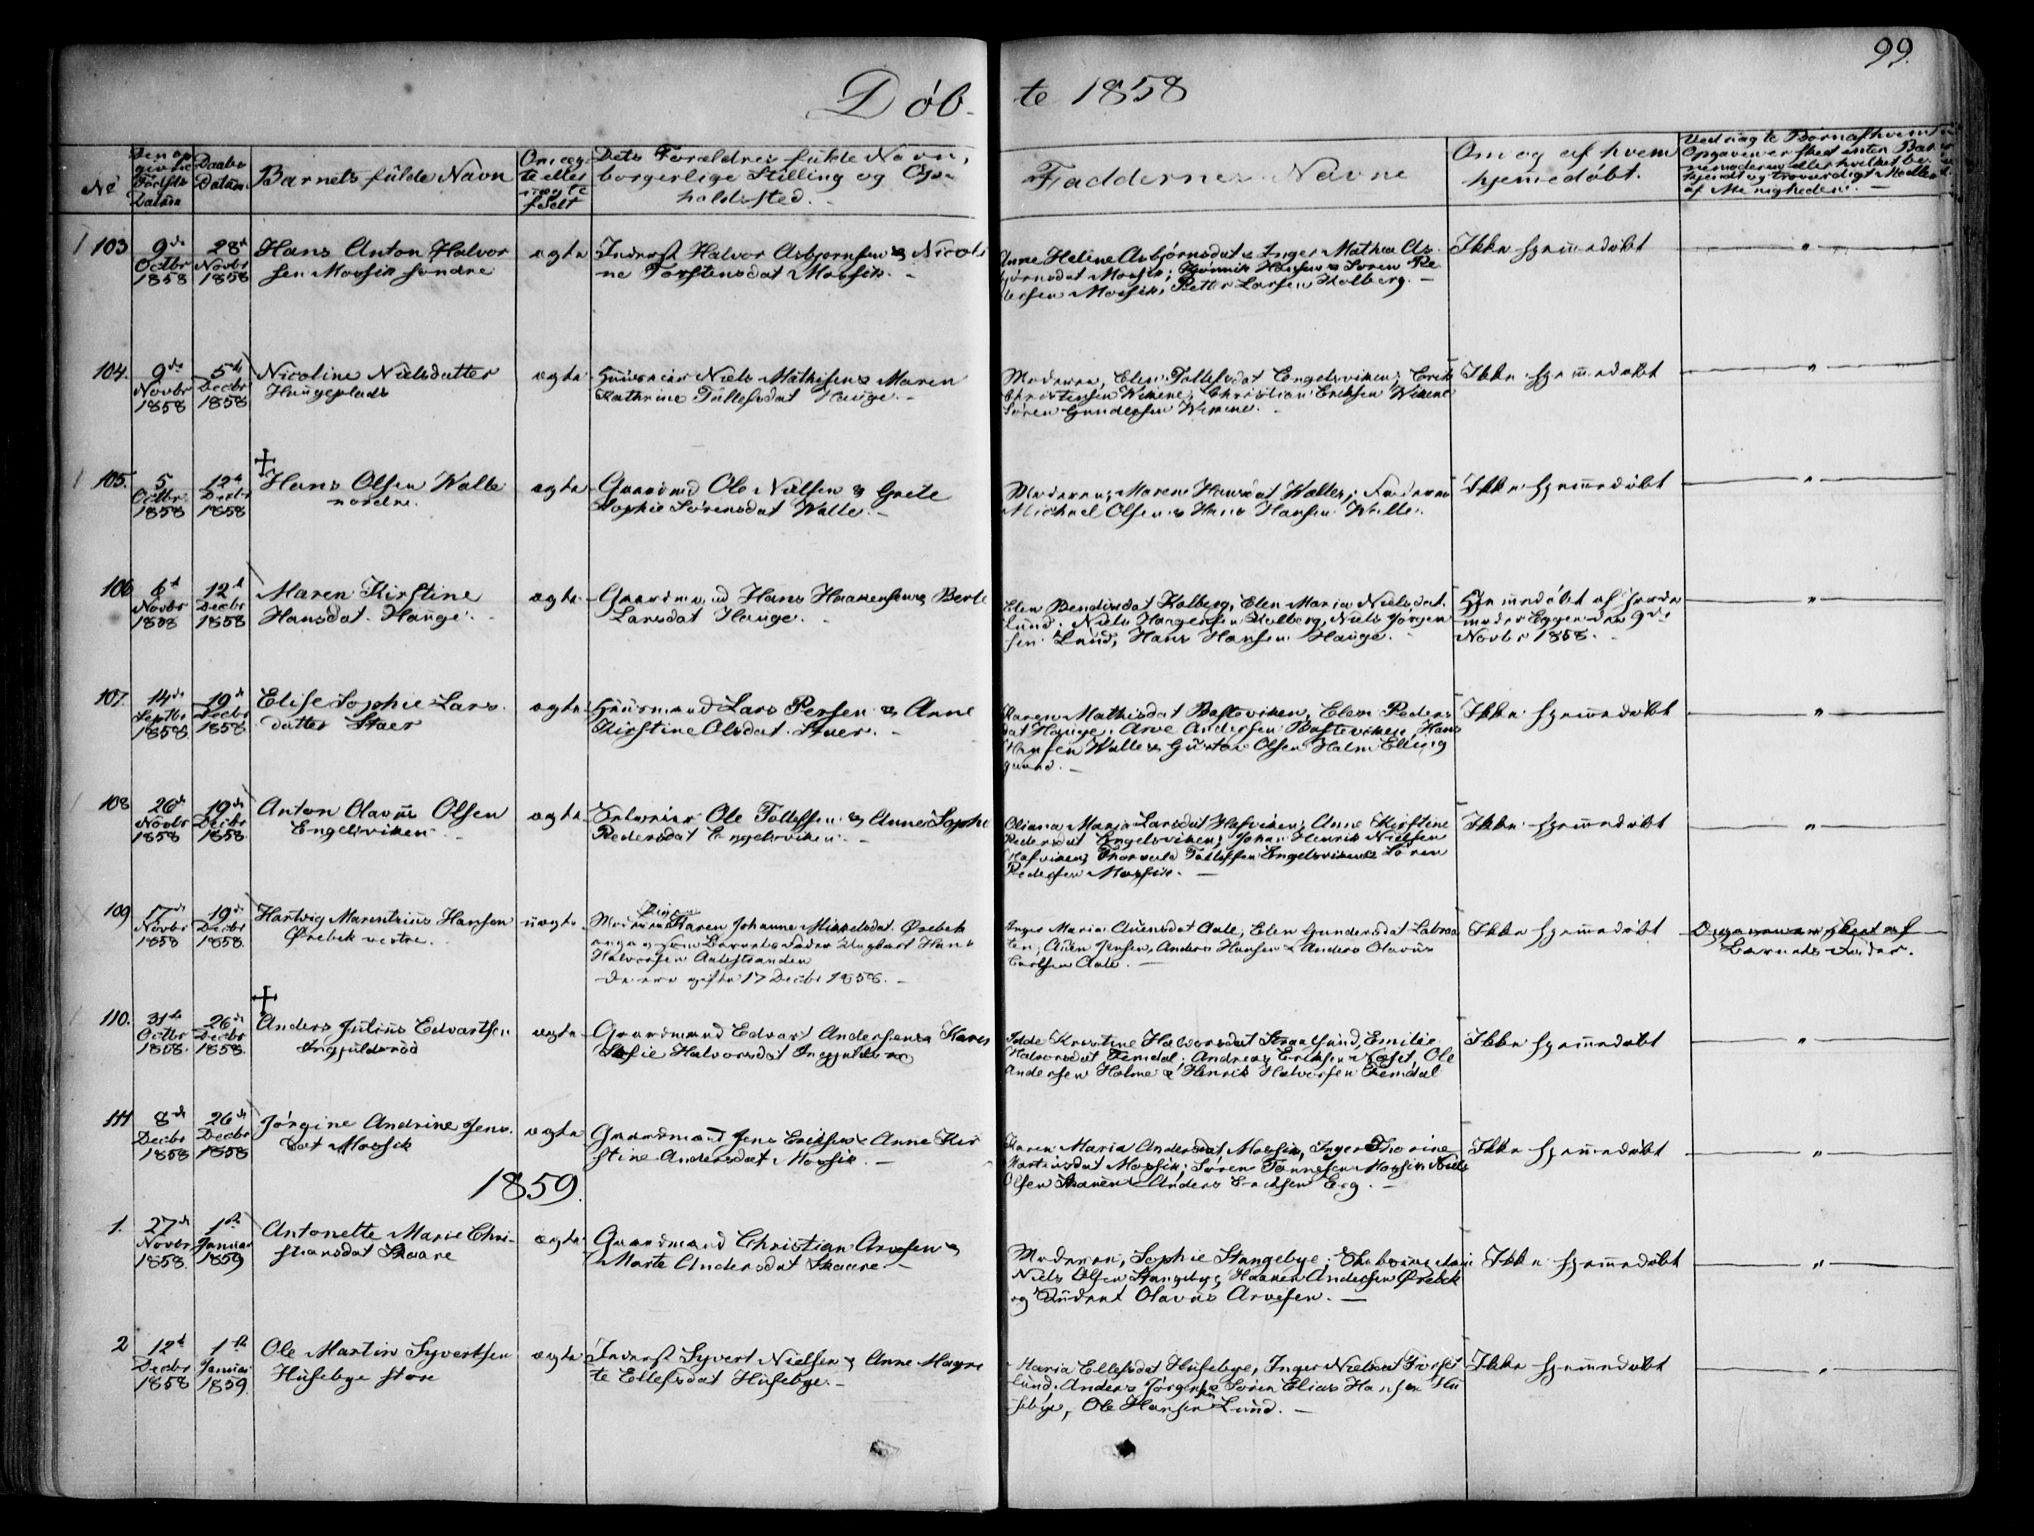 99.
Döb-
te 1858
No
Den op
givne
Födsels
Datum
Daabs
Datum
Barnets fulde Navn
Om æg
te eller
uægte
födt
Dets Forældres fulde Navn,
borgerlige Stilling og Op-
holdssted.
Faddernes Navne
Om og af hvem
hjemedöbt.
Ved uægte Börn af hvem
Opgaven er skeet enten Bar
nemoderen eller hvilket be
kjendt og troværdigt Medlem
af Menigheden.
103
9de
Octbr
1858
28de
Novbr
1858
Hans Anton Halvor
sen Mossik söndre
ægte
Inderst Halvor Asbjornsen & Nicoli
ne Torstensdat Mossik.
Anne Heline Asbjörnsdat & Inger Mathea As
björnsdat Mossik; Hansen & Soren Pe
tersen Mossik, Petter Larsen Kolberg. -
Ikke hjemmedöbt
"
104.
9de
Novbr
1858
5te
Decbr
1858
Nicoline Nielsdatter
Haugeplads
ægte
Huusmand Niels Mathisen & Maren
Kathrine Tollefsdat Hauge.
Moderen, Elen Tollefsdat Engelsviken; Erik
Christensen Wikene, Christian Eriksen Wikene
Sören Gundersen Wikene.
Ikke hjemmedöbt
"
105.
5
Octbr
1858
12te
Decbr
1858
Hans Olsen Walle
nordre.
ægte
Gaardmd Ole Nielsen & Grete
Sophie Sörensdat Walle.
Moderen, Maren Hansdat Walle, Faderen
Michael Olsen & Hans Hansen Walle.
Ikke hjemmedöbt
"
106
6te
Novbr
1858
12te
Decbr
1858
Maren Kirstine
Hansdat. Hauge.
ægte
Gaardmand Hans Haavensen & Berte
Larsdat Hauge.
Elen Bendixdat Kolberg, Elen Maria Nielsdat
Lund. Niels Kolberg, Niels Jörgen
sen Lund, Hans Hansen Hauge.
Hjemmedöbt af Jorde
moder Egger den 9de
Novbr 1858.
"
107.
14de
Septbr
1858
19de
Decbr
1858
Elise Sophie Lars
datter Staer
ægte
Huusmand Lars Persen & Anne
Kirstine Olsdat. Staer.
Karen Mathisdat Bosteviken, Elen Peders
dat Hauge. Arve Andersen Bosteviken, Hans
Hansen Walle & Gustav Olsen Holm Elling
gaard.
Ikke hjemmedöbt
"
108
26de
Novbr
1858
19de
Decbr
1858
Anton Olavus Olsen
Engelsviken
ægte
Ole Tollefsen & Anne Sophie
Pedersdat Engelsviken.
Oliana Maria Larsdat Hafviken; Anne Kirstine
Pedersdat Engelsviken; Johan Henrik Nielsen
Hafviken; Thorvald Tollefsen Engelsviken & Sören
Pedersen Mossik.
Ikke hjemmedöbt
"
109
17de
Novbr
1858
19de
Decbr
1858.
Hartvig Marentzius Hansen
Örebek vestre.
uægte
Pigen
Moderen Karen Johanne Mikkelsdat. Örebek
angav som Barnets Fader Ungkarl Hans
Halvorsen Aalestranden
De ere gifte 17 Decbr 1858.
Inger Maria Auensdat Aale, Elen Gundersdat
ten, Auen Jensen, Anders Hansen & Anders Olavus
Carlsen Aale.
Ikke hjemmedöbt
Opgaven er skeet af
Barnets Fader.
110.
31te
Octbr
1858.
26de
Decbr
1858.
Anders Julius Edvartsen
Ingjuldsröd
ægte
Gaardmand Edvart Andersen & Karen
Sofie Halvorsdat Ingjuldsröd
Kristine Halvorsdat Straalsund, Emilie
Halvorsdat Femdal, Andreas Eriksen Næset, Ole
Andersen Holme & Henrik Halvorsen Femdal
Ikke hjemmedöbt
"
111
8de
Decbr
1858
26de
Decbr
1858
Jörgine Andrine Jens
dat Mossik
ægte
Gaardmand Jens Eriksen & Anne Kir
stine Andersdat Mossik.
Karen Maria Andersdat Mossik, Inger Thorine
Martinsdat Mossik; Sören Tönnesen Mossik, Niels
Olsen Skaaren & Anders Ericksen Eeg.
Ikke hjemmedöbt
"
1859.
1.
27de
Novbr
1858.
1ste
Januar
1859
Antonette Marie Chri-
stiansdat Skaare
ægte
Gaardmand Christian Arvesen &
Marte Andersdat Skaare.
Moderen, Sophie Stangebye;
Niels Olsen Stangebye, Haaken Andersen Örebek
og Student Olavus Arvesen.
Ikke hjemmedöbt
"
2
12te
Decbr
1858
1ste
Januar
1859
Ole Martin Syvertsen
Husebye store
ægte
Inderst Syvert Nielsen & Anne Magre
te Ellefsdat Husebye.
Maria Ellefsdat Husebye, Inger Nielsdat Torset
lund, Anders Jörgensen Sören Elias Hansen Hu
sebye, Ole Hansen Lund.
Ikke hjemmedöbt
"